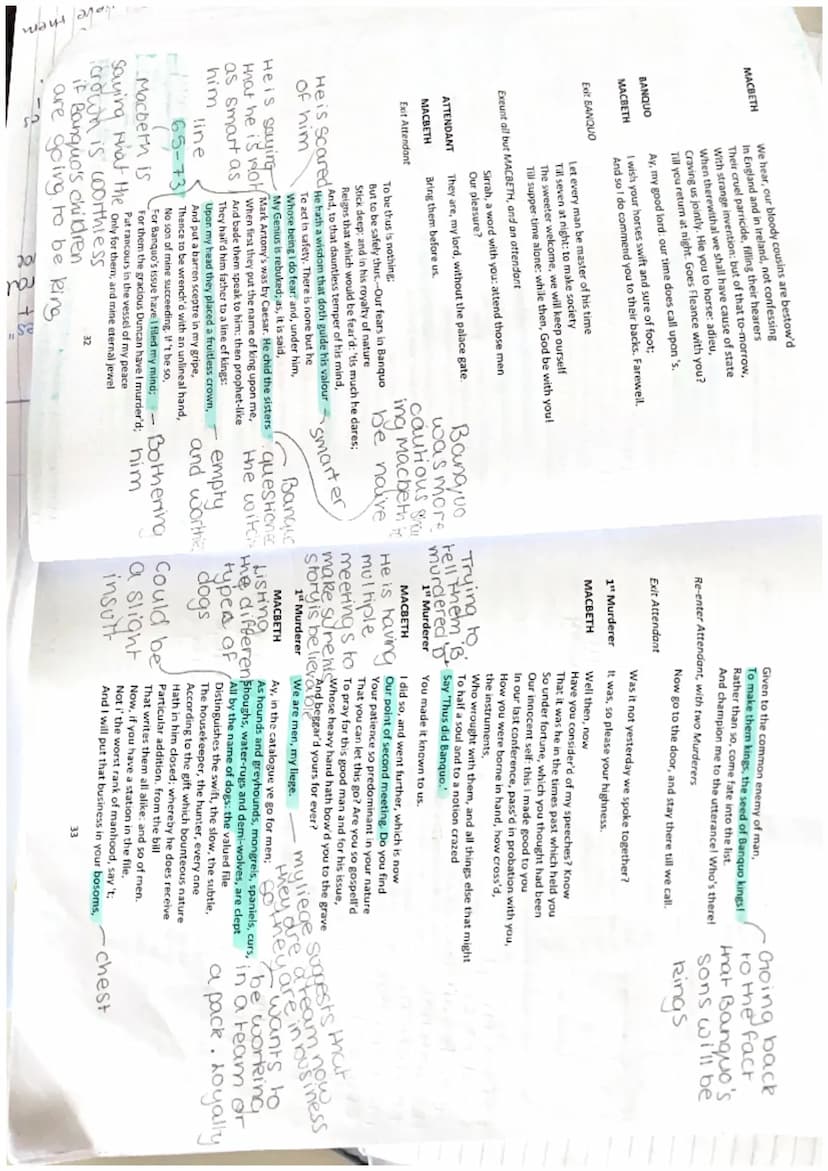 MACBETH
We hear, our bloody cousins are bestow'd
In England and in Ireland, not confessing
Their cruel parricide, filling their hearers
With strange invention: but of that to-morrow,
When therewithal we shall have cause of state
Craving us jointly. Hie you to horse: adieu,
Till you return at night. Goes Fleance with you?
BANQUO
Ay, my good lord: our time does call upon 's.
MACBETH
I wish your horses swift and sure of foot;
And so I do commend you to their backs. Farewell.
Exit BANQUO
Let every man be master of his time
Till seven at night: to make society
The sweeter welcome, we will keep ourself
Till supper-time alone: while then, God be with you!
Exeunt all but MACBETH, and an attendant
Sirrah, a word with you: attend those men
Our pleasure?
ATTENDANT
They are, my lord, without the palace gate.
MACBETH
Bring them before us.
Exit Attendant
To be thus is nothing;
But to be safely thus:--Our fears in Banquo
Stick deep; and in his royalty of nature
Reigns that which would be fear'd: 'tis much he dares;
And, to that dauntless temper of his mind,
He hath a wisdom that doth guide his valour
To act in safety. There is none but he
Whose being I do fear: and, under him,
My Genius is rebuked; as, it is said,
Mark Antony's was by Caesar. He chid the sisters
When first they put the name of king upon me,
And bade them speak to him: then prophet-like
They hail'd him father to a line of kings:
Upon my head they placed a fruitless crown,
And put a barren sceptre in my gripe,
Thence to be wrench'd with an unlineal hand,
No son of mine succeeding. If 't be so,
For Banquo's issue have I filed my mind;
For them the gracious Duncan have I murder'd;
Put rancours in the vessel of my peace
Only for them; and mine eternal jewel
32
Banquo
was more
cautious
ing Macbeth
be naive
He is scared
of him
smarter
He is saying
that he is not
as smart as
him line
65-73
questioned
the witch
empty
and
Bothering
him
Macbeth is
saying that the
crown is worthless
if Banquo's children
are going to be king
Given to the common enemy of man,
To make them kings, the seed of Banquo kings!
Rather than so, come fate into the list.
And champion me to the utterance! Who's there!
Re-enter Attendant, with two Murderers
Now go to the door, and stay there till we call.
Exit Attendant
Was it not yesterday we spoke together?
1st Murderer
It was, so please your highness.
MACBETH
Well then, now
Have you consider'd of my speeches? Know
That it was he in the times past which held you
So under fortune, which you thought had been
Our innocent self: this I made good to you
In our last conference, pass'd in probation with you,
How you were borne in hand, how cross'd,
the instruments,
Who wrought with them, and all things else that might
To half a soul and to a notion crazed
Say 'Thus did Banquo.'
1st Murderer
You made it known to us.
MACBETH
I did so, and went further, which is now
Our point of second meeting. Do you find
Your patience so predominant in your nature
That you can let this go? Are you so gospell'd
To pray for this good man and for his issue,
Whose heavy hand hath bow'd you to the grave
And beggar'd yours for ever?
1st Murderer
We are men, my liege.
MACBETH
Ay, in the catalogue ye go for men;
As hounds and greyhounds, mongrels, spaniels, curs,
Shoughs, water-rugs and demi-wolves, are clept
All by the name of dogs: the valued file
Distinguishes the swift, the slow, the subtle,
The housekeeper, the hunter, every one
According to the gift which bounteous nature
Hath in him closed; whereby he does receive
Particular addition, from the bill
That writes them all alike: and so of men.
Now, if you have a station in the file,
Not i' the worst rank of manhood, say 't;
And I will put that business in your bosoms,
33
Going back
to the fact
that Banquo's
sons will be
kings
Trying to
tell them 'B'
murdered
He is having
multiple
meetings to
make sure his
story is believable
my liege suggests that
they are a team now
so they are in business
Listing
the different
types of
dogs
wants to
be working
in a team or
a pack. Loyalty
could be
a slight
insult
chest